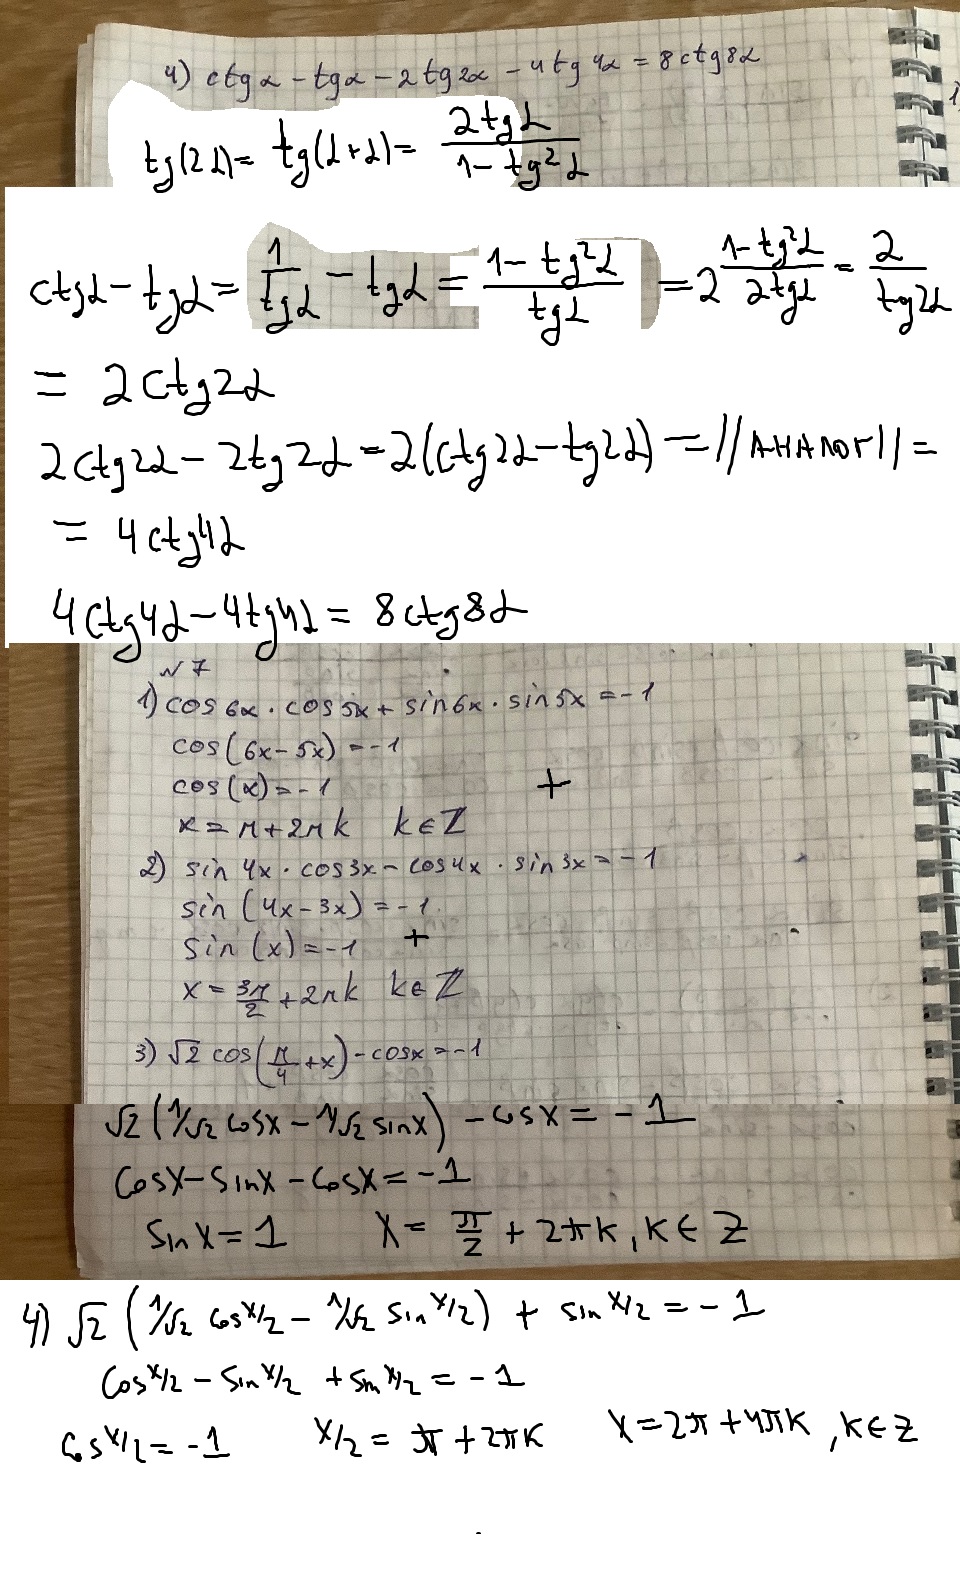 4) ctgα - tgα - 2tg2α - 4tg4α = 8ctg8α
tg(2α) = tg(α+α) = 2tgα / (1 - tg²α)
ctgα - tgα = 1/tgα - tgα = (1 - tg²α)/tgα = 2 (1 - tg²α)/(2tgα) = 2/tg2α
= 2ctg2α
2ctg2α - 2tg2α = 2(ctg2α - tg2α) = //АНАЛОГ// =
= 4ctg4α
4ctg4α - 4tg4α = 8ctg8α
№7
1) cos6x · cos5x + sin6x · sin5x = -1
cos(6x - 5x) = -1
cos(x) = -1 +
x = π + 2πk k∈Z
2) sin4x · cos3x - cos4x · sin3x = -1
sin(4x - 3x) = -1
sin(x) = -1 +
x = 3π/2 + 2πk k∈Z
3) √2 cos(π/4 + x) - cosx = -1
√2 (1/√2 cosx - 1/√2 sinx) - cosx = -1
cosx - sinx - cosx = -1
sinx = 1 x = π/2 + 2πk, k∈Z
4) √2 (1/√2 cos x/2 - 1/√2 sin x/2) + sin x/2 = -1
cos x/2 - sin x/2 + sin x/2 = -1
cos x/2 = -1 x/2 = π + 2πk x = 2π + 4πk, k∈Z